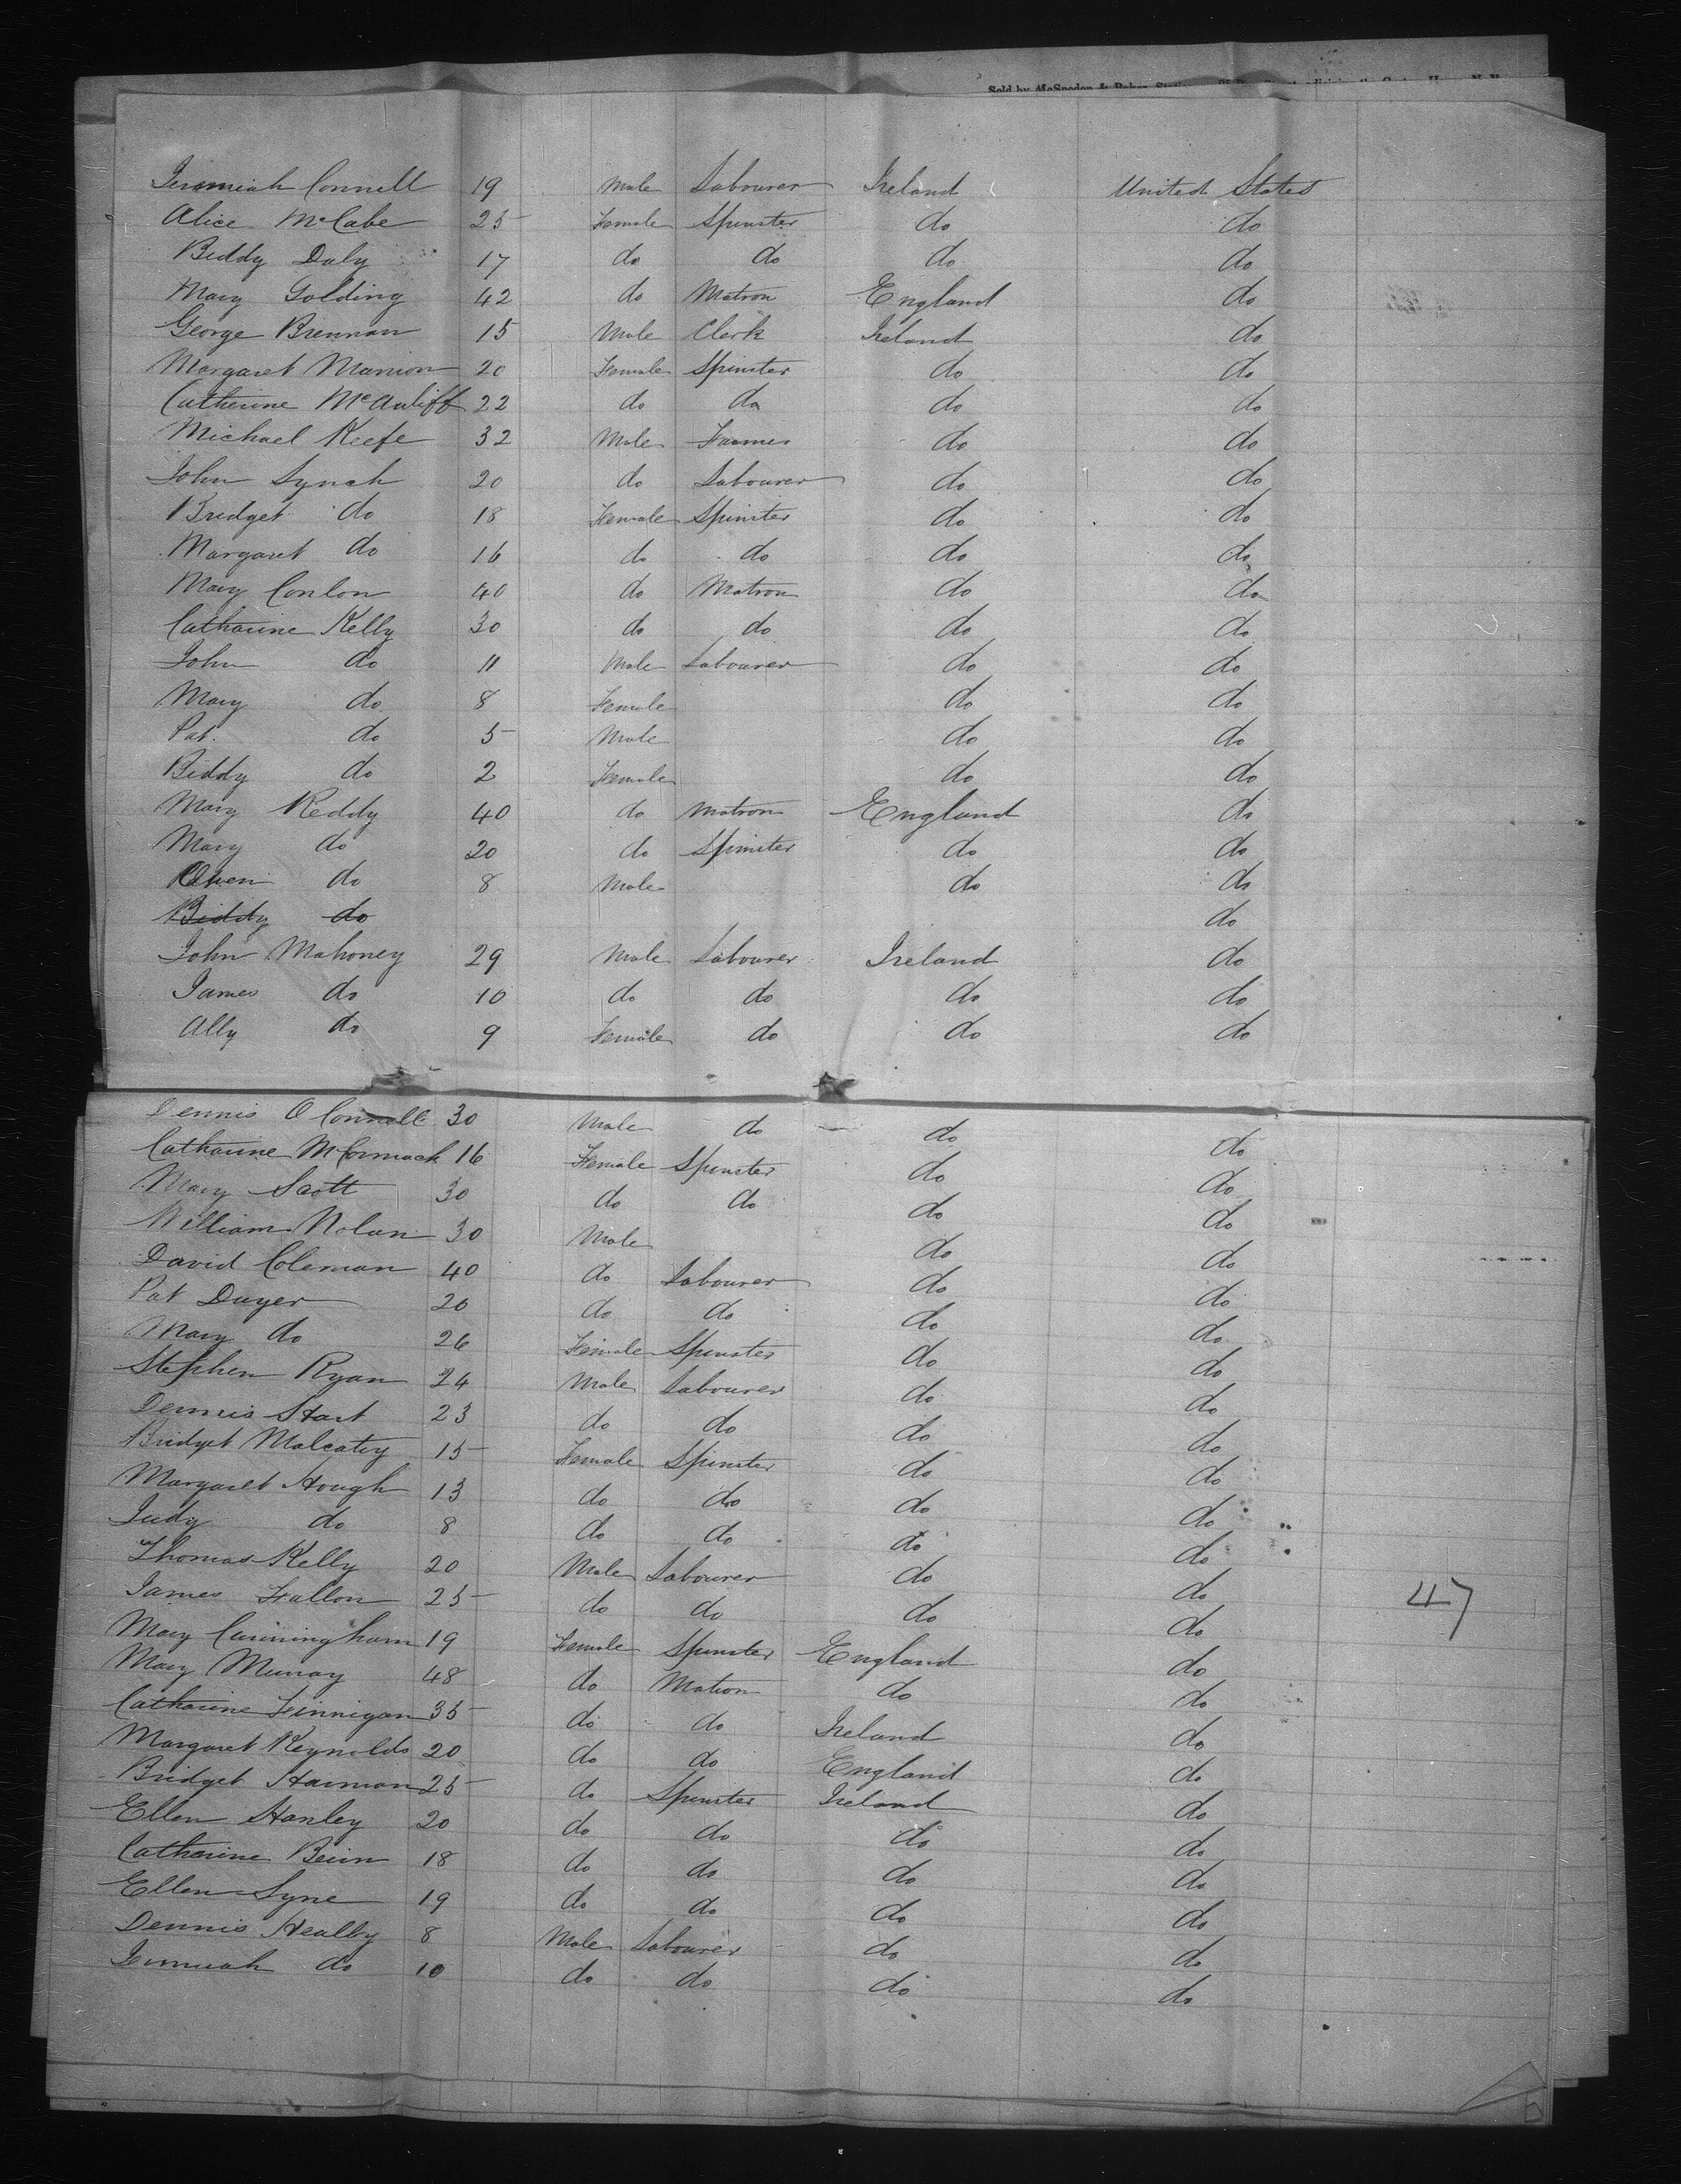 Sold by McSpedon & Baker
Jeremiah Connell 19 Male Labourer Ireland United States
Alice McCabe 25 Female Spinster do do
Biddy Daly 17 do do do do
Mary Golding 42 do Matron England do
George Brennan 15 Male Clerk Ireland do
Margaret Manion 20 Female Spinster do do
Catherine McAuliff 22 do do do do
Michael Keefe 32 Male Farmer do do
John Lynch 20 do Labourer do do
Bridget do 18 Female Spinster do do
Margaret do 16 do do do do
Mary Conlon 40 do Matron do do
Catharine Kelly 30 do do do do
John do 11 Male Labourer do do
Mary do 8 Female do do
Pat. do 5 Male do do
Biddy do 2 Female do do
Mary Reddy 40 do Matron England do
Mary do 20 do Spinster do do
Owen do 8 Male do do
Biddy do do
John Mahoney 29 Male Labourer Ireland do
James do 10 do do do do
Ally do 9 Female do do do
Dennis O Connell 30 Male do do do
Catharine McCormack 16 Female Spinster do do
Mary Scott 30 do do do do
William Nolan 30 Male do do
David Coleman 40 do Labourer do do
Pat Dwyer 20 do do do do
Mary do 26 Female Spinster do do
Stephen Ryan 24 Male Labourer do do
Dennis Hart 23 do do do do
Bridget Malcatey 15 Female Spinster do do
Margaret Hough 13 do do do do
Judy do 8 do do do do
Thomas Kelly 20 Male Labourer do do
James Fallon 25 do do do do
47
Mary Cunningham 19 Female Spinster England do
Mary Murray 48 do Matron do do
Catharine Finnigan 35 do do Ireland do
Margaret Reynolds 20 do do England do
Bridget 25 do Spinster Ireland do
Ellen Hanley 20 do do do do
Catharine Beirn 18 do do do do
Ellen Lyne 19 do do do do
Dennis Healby 8 Male Labourer do do
Jerimiah do 10 do do do do